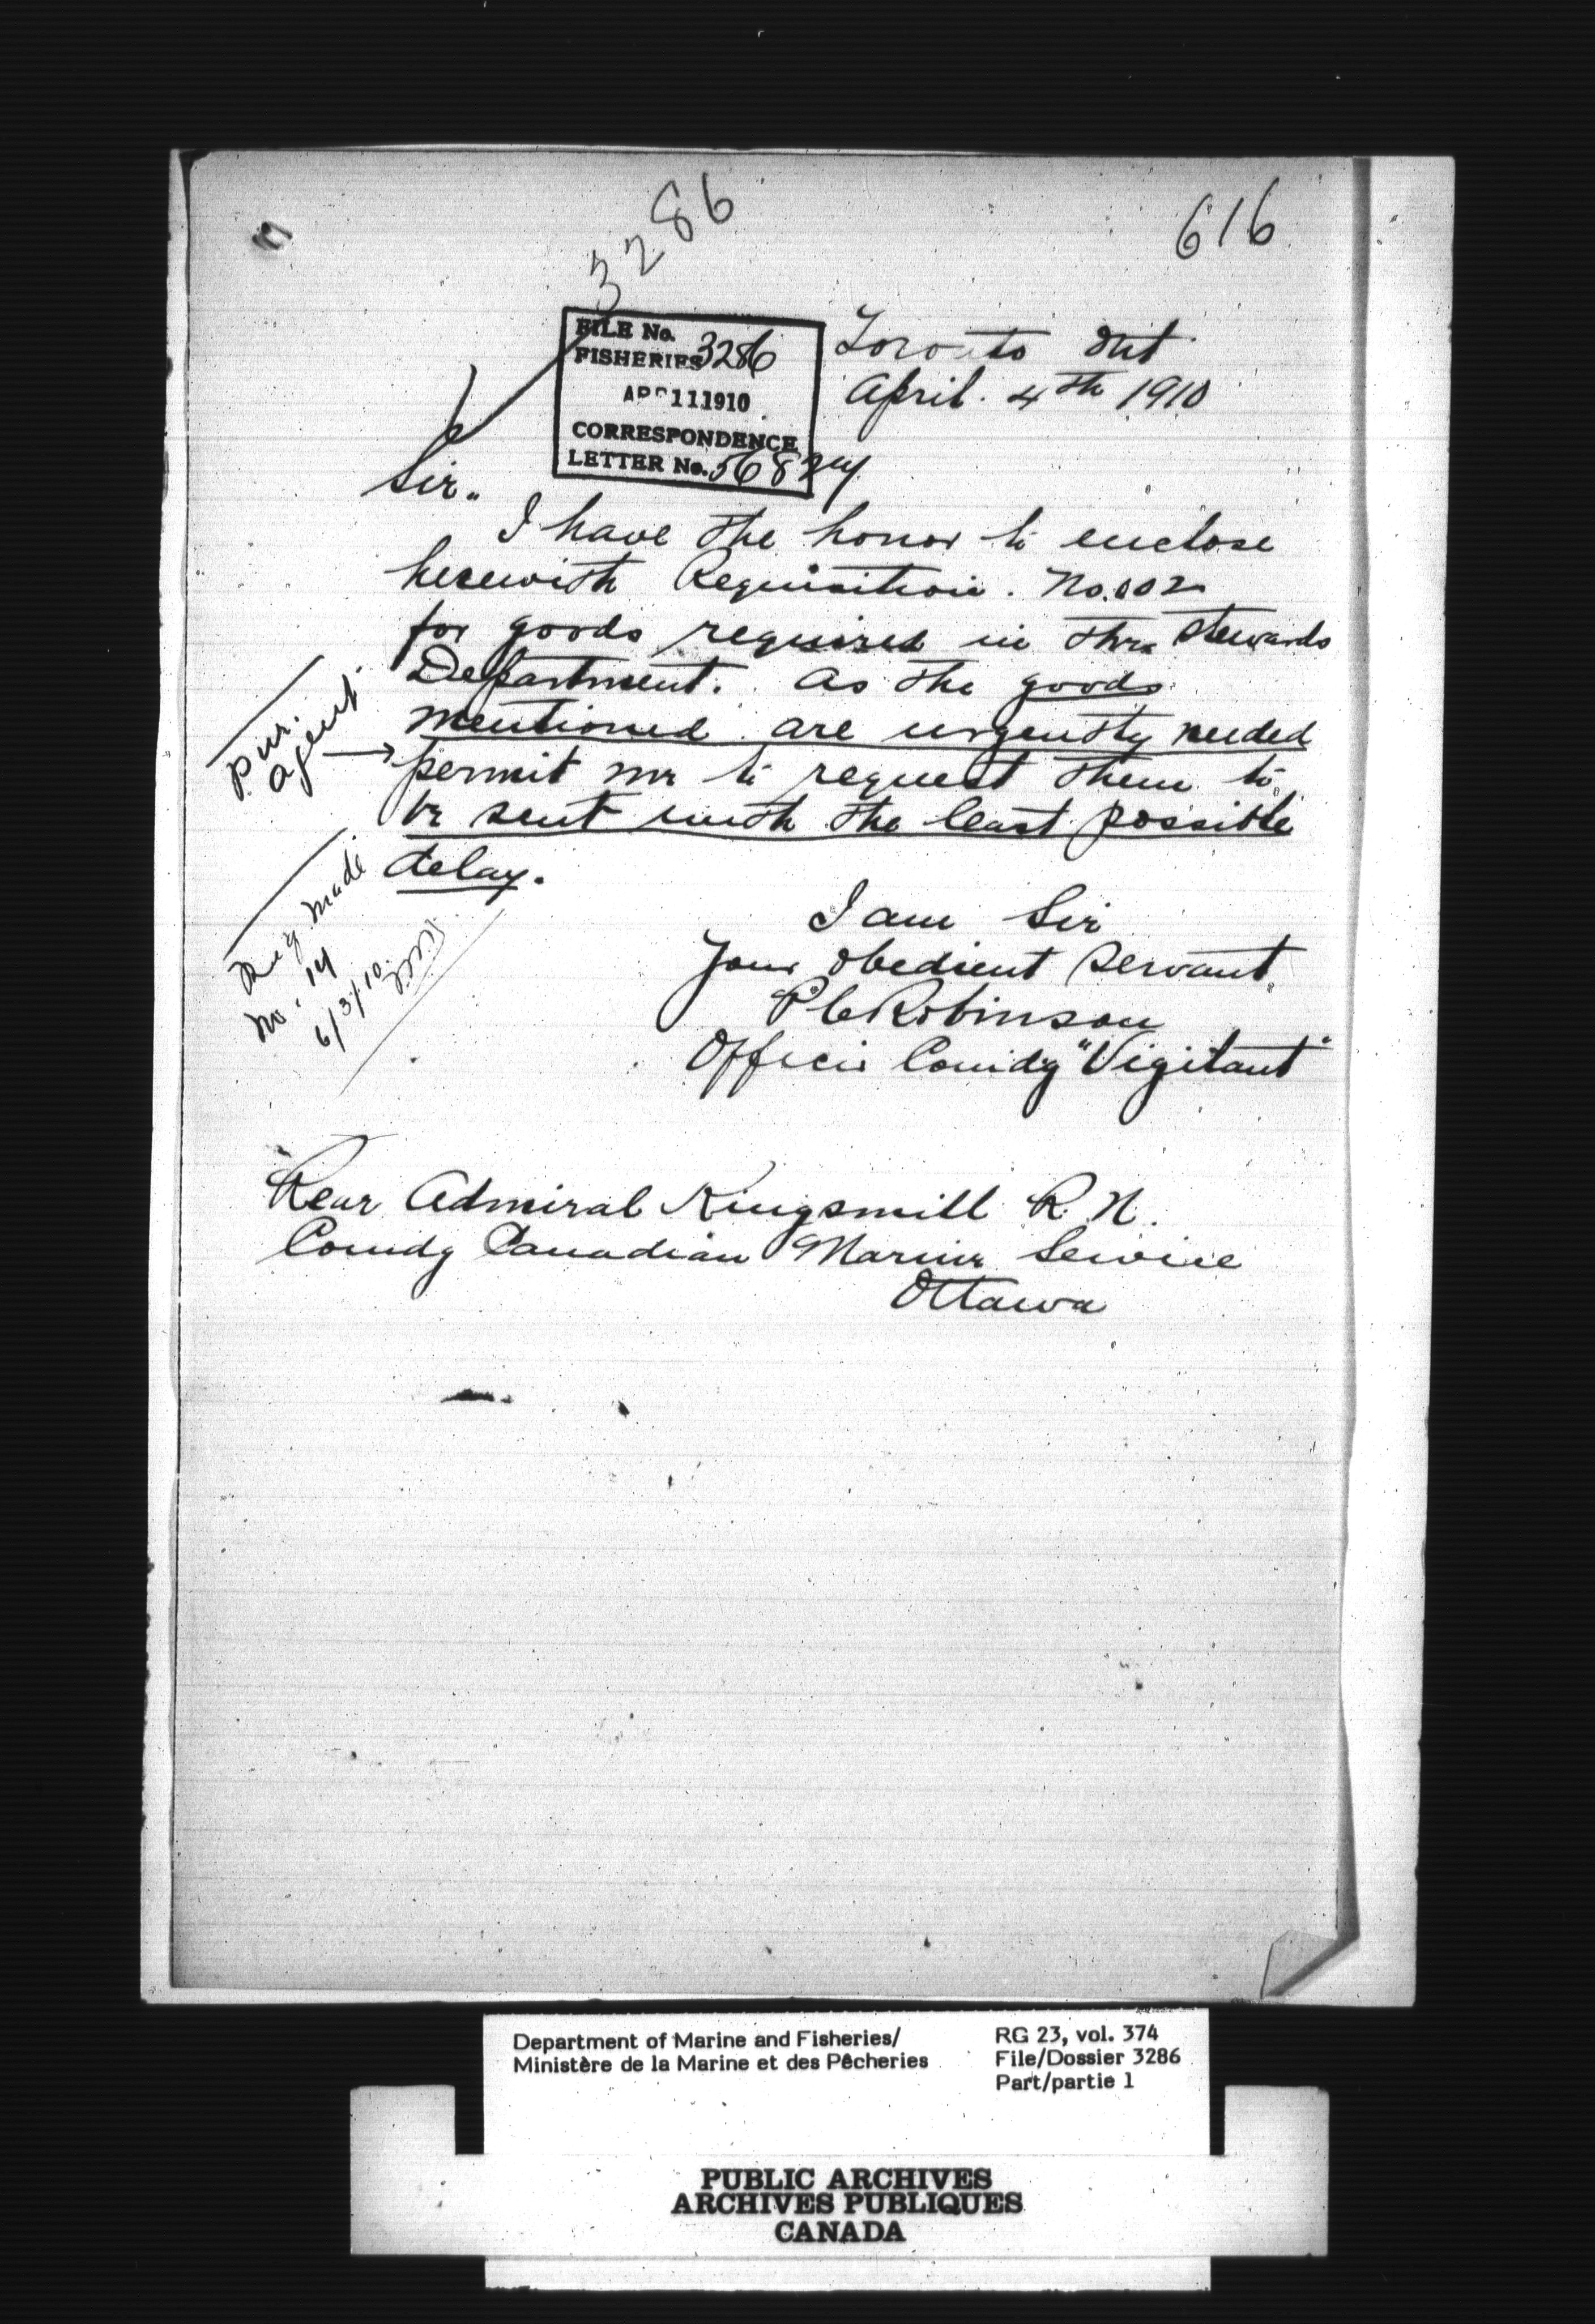 3286
616
FILE No.
FISHERIES 3286
APR 11 1910
CORRESPONDENCE
LETTER No. 56824
Toronto Ont
April. 4th 1910
Sir..
I have the honor to enclose
herewith Requisition. No. 002
for goods required in the Stewards
Department. As the goods
mentioned are urgently needed
permit me to request them to
be sent with the least possible
delay.
Pur.
Agent.
Req made
No. 14
6/3/10
I am Sir
Your obedient servant.
P C Robinson
Officer Comdg "Vigilant"
Rear Admiral Kingsmill R. N.
Comdg Canadian Marine Service
Ottawa
Department of Marine and Fisheries/
Ministère de la Marine et des Pêcheries
RG 23, vol. 374
File/Dossier 3286
Part/partie 1
PUBLIC ARCHIVES
ARCHIVES PUBLIQUES
CANADA